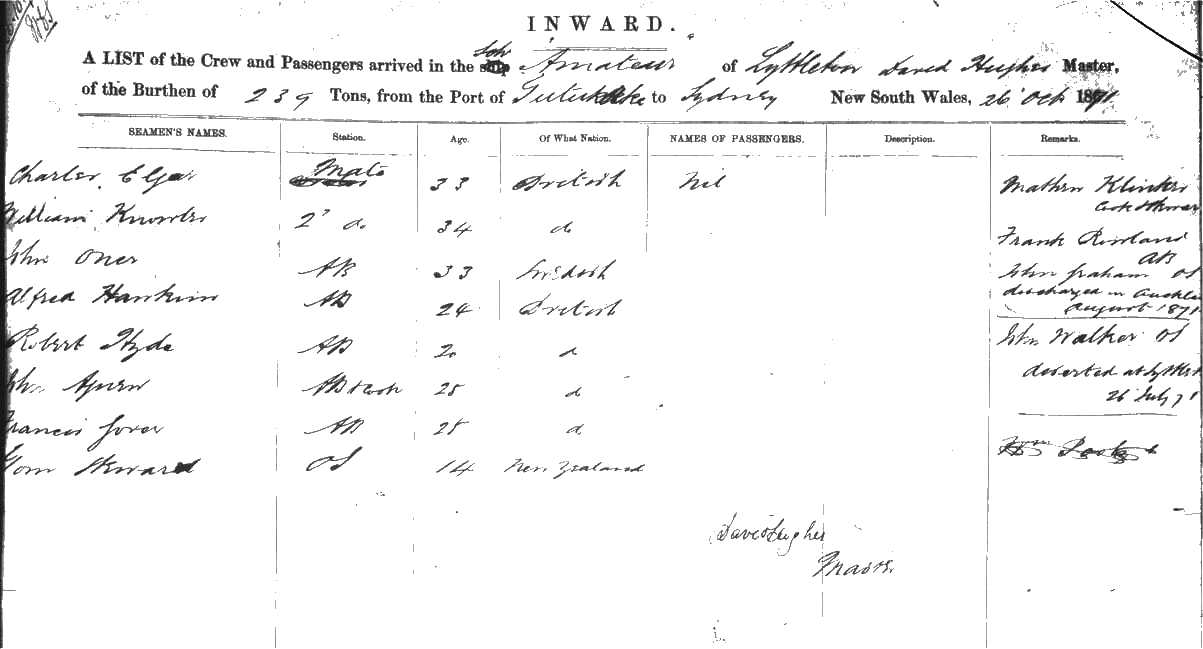 INWARD.
A LIST of the Crew and Passengers arrived in the Sch Amateur of Lyttleton David Hughes Master,
of the Burthen of 239 Tons, from the Port of to Sydney New South Wales, 26 Oct 1871
SEAMEN'S NAMES. Station. Age. Of What Nation. NAMES OF PASSENGERS. Description. Remarks.
Charles Elgar Mate 33 British Nil
William Knowles 2d do 34 do
John AB 33 Swedish
Alfred Hawkins AB 24 British
Robert Hyde AB 20 d
John AB & Cook 28 d
Francis Gover AB 28 d
Tom OS 14 New Zealand
Cook & Steward
Frank Rowland
AB
John Graham OS
discharged in Auckla
August 1871
John Walker OS
deserted at Lyttlet
26 July 71
David Hughes
Master